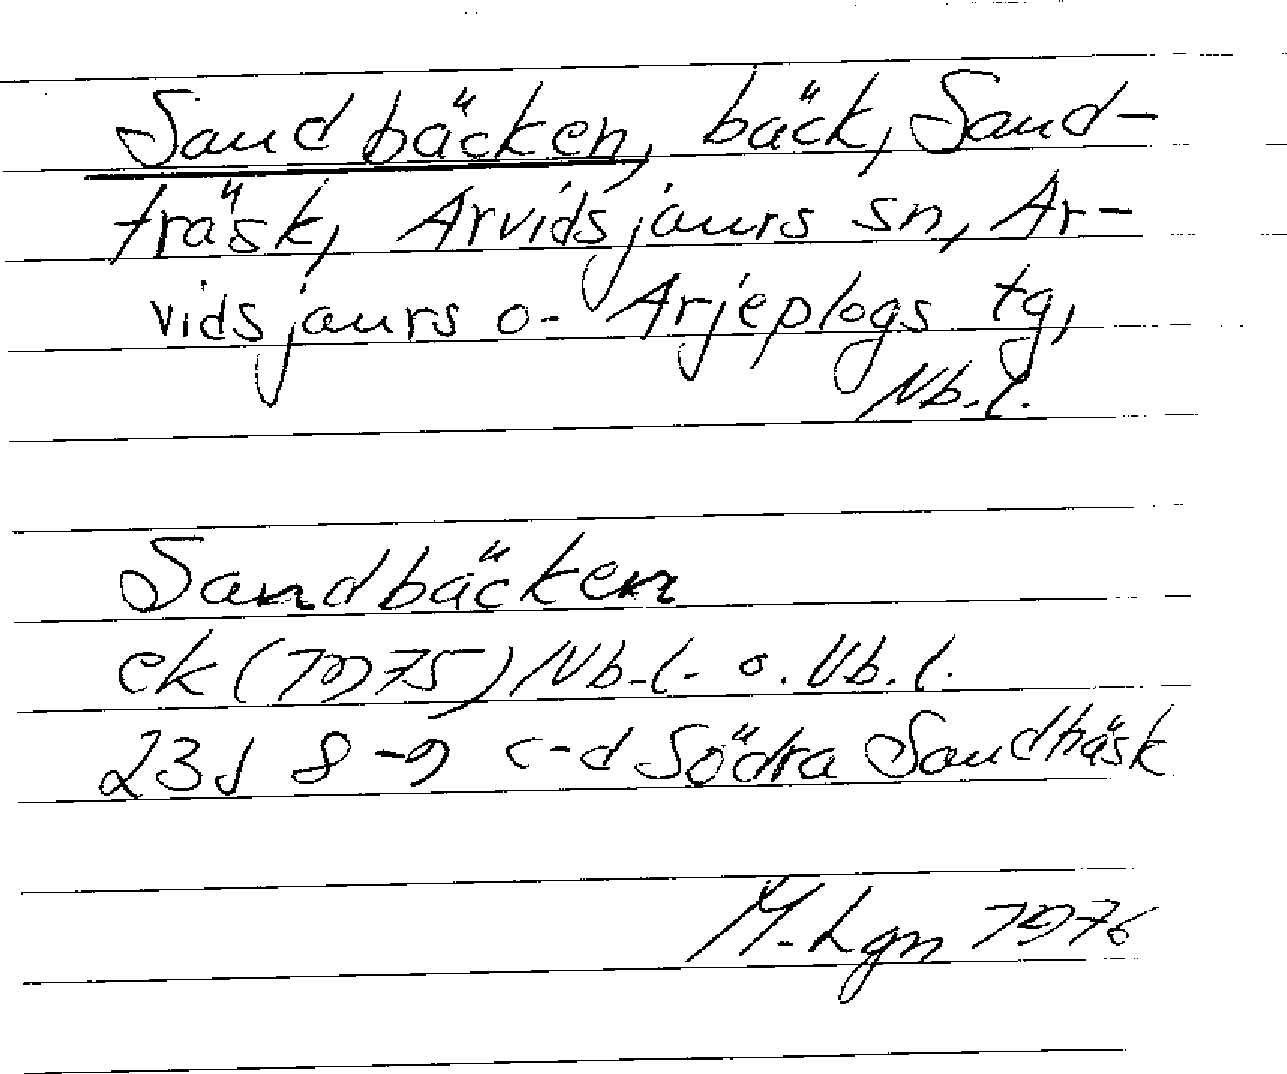 Sandbäcken, bäck, Sand-
träsk, Arvidsjaurs sn, Ar-
vidsjaurs o. Arjeplogs tg,
Nb.l.
Sandbäcken
ek (1975) Nb.l. o. Vb.l.
23J 8-9 c-d Södra Sandträsk
M. Lgn 1976